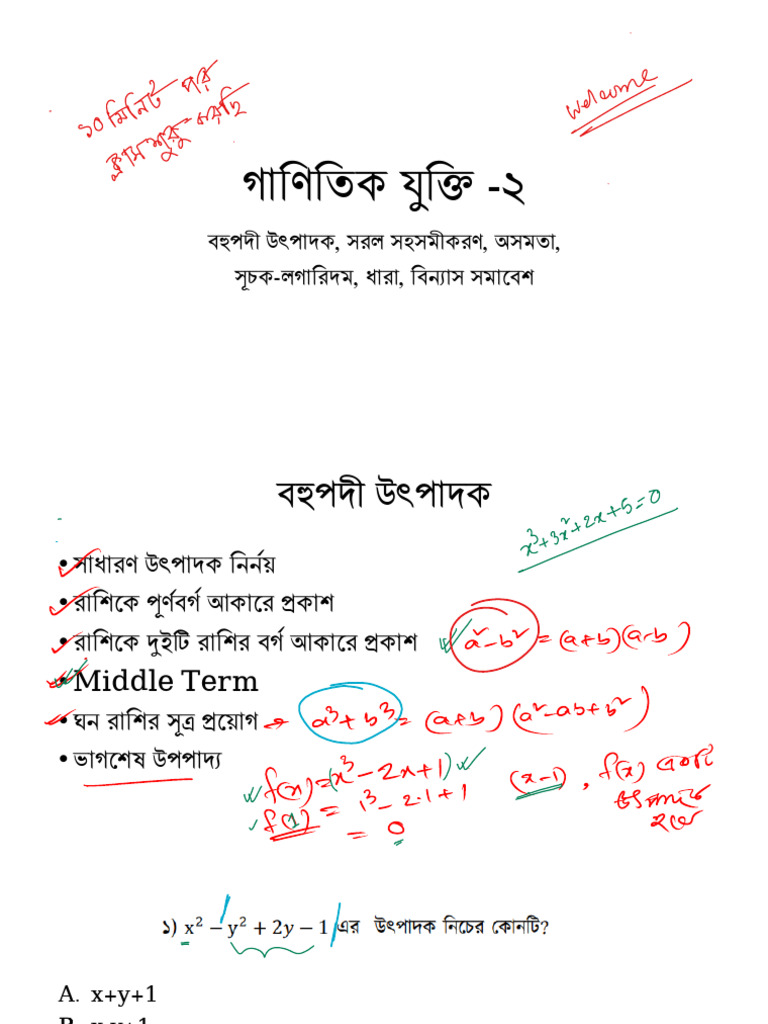 ১০ মিনিট পর
ক্লাস শুরু করছি
welcome
গাণিতিক যুক্তি -২
বহুপদী উৎপাদক, সরল সহসমীকরণ, অসমতা,
সূচক-লগারিদম, ধারা, বিন্যাস সমাবেশ
বহুপদী উৎপাদক
x³+3x²+2x+5=0
• সাধারণ উৎপাদক নির্নয়
• রাশিকে পূর্ণবর্গ আকারে প্রকাশ
• রাশিকে দুইটি রাশির বর্গ আকারে প্রকাশ a²-b² = (a+b)(a-b)
• Middle Term
• ঘন রাশির সূত্র প্রয়োগ → a³+b³ = (a+b)(a²-ab+b²)
• ভাগশেষ উপপাদ্য
f(x) = (x³-2x+1) (x-1), f(x) এর একটি
f(1) = 1³-2.1+1 উৎপাদক
= 0 হবে
১) x² − y² + 2y − 1 এর উৎপাদক নিচের কোনটি?
A. x+y+1